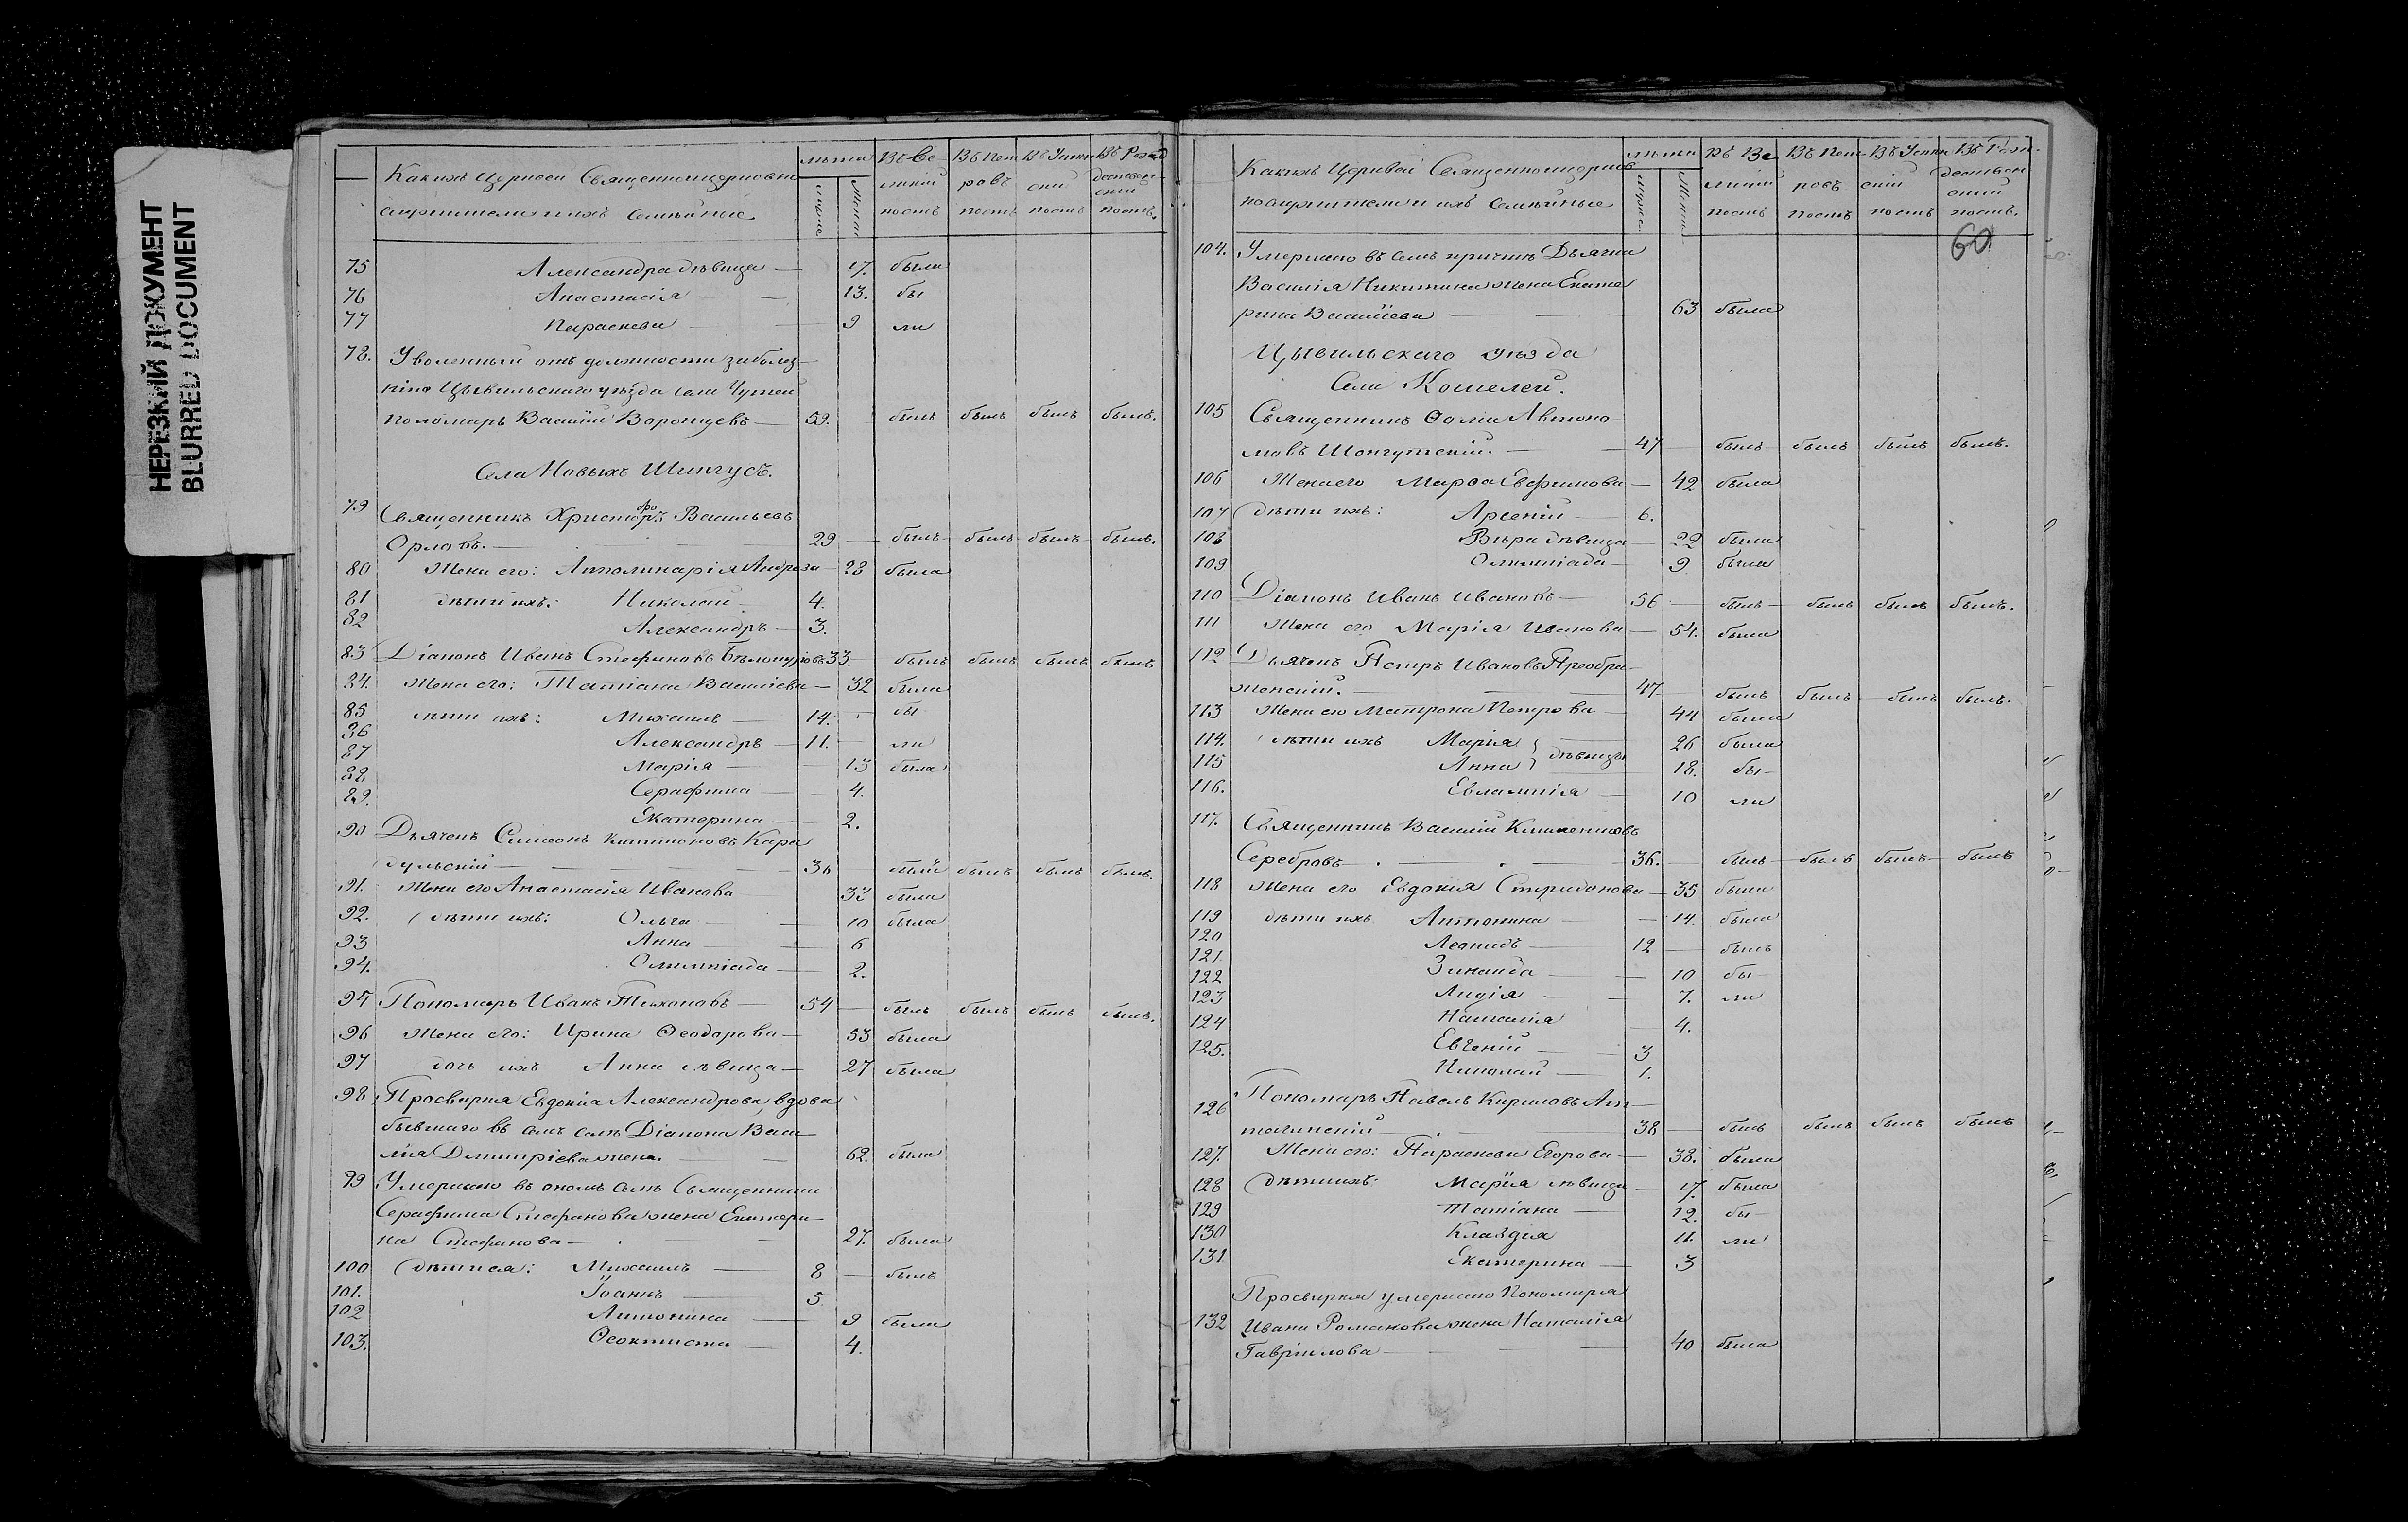 НЕРЕЗКИЙ ДОКУМЕНТ
BLURRED DOCUMENT
Какихъ Церквей Священноцерковно
служители и ихъ Семейные
лѣта
мужс
Женс
Въ Ве-
ликій
постъ
Въ Пет
ровъ
постъ
Въ Успен
скій
постъ
Въ Рожд
дественс-
скій
постъ.
75 Александра дѣвица — 17. были
76 Анастасія — 13. бы
77 Параскева — 9 ли
78. Уволенный отъ должности за болез-
нію Цывильскаго уѣзда села
пономарь Василій Воронцевъ — 59. былъ былъ былъ былъ.
Села Новыхъ Шингусъ.
79 Священникъ Христофоръ Васильевъ
Орловъ. — 29 — былъ былъ былъ былъ.
80 Жена его: Апполинарія Андреева — 28 была
81 дѣти ихъ: Николай 4.
82 Александръ — 3.
83 Діаконъ Иванъ Стефановъ 33. былъ былъ былъ былъ
84. Жена его: Татіана Василіева — 32 была
85 дѣти ихъ: Михаилъ — 14. бы
86 Александръ — 11. — ли
87 Марія — 13 была
88 Серафима — 4.
89. Екатерина — 2.
90 Дьячекъ Симеонъ Кара
сульскій — 36 былъ былъ былъ былъ.
91. Жена его Анастасія Иванова 33 была
92. дѣти ихъ: Ольга — 10 была
93 Анна — 6
94. Олимпіада — 2.
95 Пономарь Иванъ Тихоновъ — 54 — былъ былъ былъ былъ.
96 Жена его: Ирина Ѳеодорова — 53 была
97 дочь ихъ Анна дѣвица — 27 была
98 Просвирня Евдокія Александрова, вдова
бывшаго въ семъ селѣ Діакона Васи-
лія Димитріева жена. — 62. была
99 Умершаго въ ономъ селѣ Священника
Серафима Стефанова жена Екатери-
на Стефанова — 27. была
100 дѣти ея: Михаилъ — 8 — былъ
101. Іоаннъ — 5
102 Антонина — 9 была
103. Ѳеоктиста — 4.
Какихъ Церквей Священноцерков
нослужители и ихъ Семейные
лѣта
мужс.
Женс.
Въ Ве
ликій
постъ
Въ Пет-
ровъ
постъ
Въ Успен
скій
постъ
Въ Рож-
дествен
скій
постъ.
60
104. Умершаго въ семъ причтѣ Дьячка
Василія Никитина жена Екате
рина Василіева — 63 была
Цывильскаго уѣзда
Села Кошелей.
105 Священникъ Ѳома Автоно-
мовъ Шонгутскій. — 47 — былъ былъ былъ былъ.
106 Жена его Марѳа Евфимова — 42 была
107 дѣти ихъ: Арсеній — 6.
108 Вѣра дѣвица — 22 была
109 Олимпіада — 9 была
110 Діаконъ Иванъ Ивановъ — 56 — былъ — былъ былъ былъ.
111 Жена его Марія Иванова — 54. была
112 Дьячекъ Петръ Ивановъ Преобра-
женскій. — 47 — былъ былъ былъ былъ.
113 Жена его Матрона Петрова — 44 была
114. дѣти ихъ Марія } дѣвицы 26 была
115 Анна } 18. бы-
116. Евлампія — 10 ли
117. Священникъ Василій Климентовъ
Серебровъ — 36. — былъ былъ былъ былъ
118 Жена его Евдокія Спиридонова — 35 была
119 дѣти ихъ Антонина — 14. была
120 Леонидъ — 12 — былъ
121. Зинаида — 10 бы-
122 Лидія — 7. ли
123 Наталія — 4.
124 Евгеній — 3
125. Николай — 1.
126 Пономарь Павелъ Кириловъ Ат-
38 — былъ былъ былъ былъ
127. Жена его: Параскева Егорова — 38. была
128 дѣти ихъ: Марія дѣвица — 17. была
129 Татіана — 12. бы-
130 Клавдія — 11. ли
131 Екатерина — 3
Просвирня умершаго Пономаря
132 Ивана Романова жена Наталія
Гавріилова — 40 была